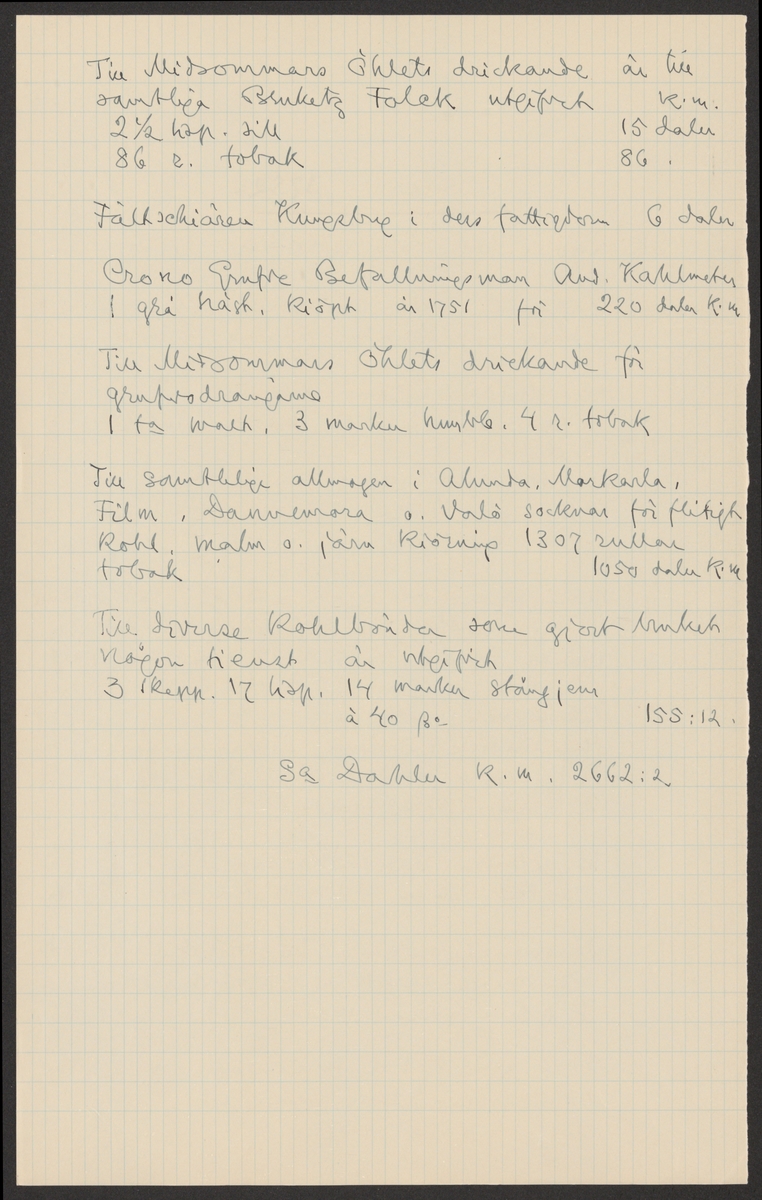 Till Midsommars Öhlets drickande är till
samtliga Bruketz Folck utgifvit K.m.
2 1/2 lisp. sill 15 daler
86 r. tobak 86 .
Fältschiären Kungsbrug i dess fattigdom 6 daler
Crono Grufve Befallningsman And. Kahlmeter
1 grå häst, kiöpt år 1751 för 220 daler K.m
Till Midsommars Öhlets drickande för
grufvodrängarne
1 ta malt, 3 marker humble, 4 r. tobak
Till samtlige allmogen i Alunda, Morkarla,
Film, Dannemora o. Valö socknar för flitigh
kohl, malm o. järn kiörning 1307 rullar
tobak 1050 daler K.m
Till diverse kohlbönder som gjort bruket
någon tienst är utgifvit
3 skepp. 17 lisp. 14 marker stångjern
à 40 155:12.
Sa Dahler K.m. 2662:2